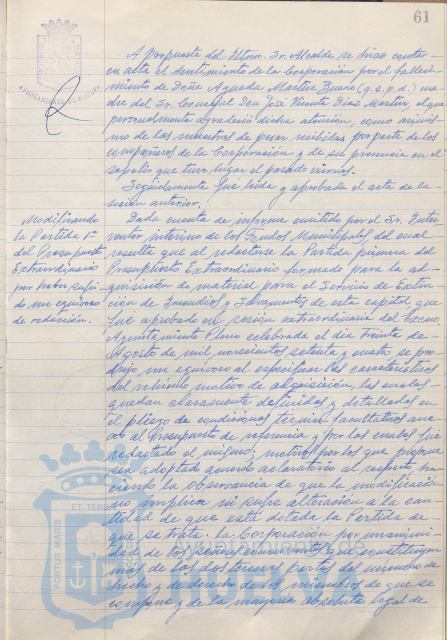 61
A propuesta del Iltmo. Sr. Alcalde se hizo constar
en acta el sentimiento de la Corporación por el falleci-
miento de Doña Agueda Martín (q.e.p.d.) ma-
dre del Sr. Concejal Don José Vicente Díaz Martín, el que
personalmente agradeció dicha atención, como asimis-
mo de las muestras de pesar recibidas por parte de los
compañeros de la Corporación y de su presencia en el
sepelio que tuvo lugar el pasado viernes.
Seguidamente fue leída y aprobada el acta de la
sesión anterior.
Modificando
la Partida 1ª
del Presupuesto
Extraordinario
por haber sufri-
do un equivoco
de redacción.
Dada cuenta de informe emitido por el Sr. Inter-
ventor interino de los Fondos Municipales del cual
resulta que al redactarse la Partida primera del
Presupuesto Extraordinario formado para la ad-
quisición de material para el Servicio de Extin-
ción de Incendios y Salvamentos de esta capital, que
fue aprobado en sesión extraordinaria del Excmo.
Ayuntamiento Pleno celebrada el día treinta de
Agosto de mil novecientos setenta y cuatro, se pro-
dujo un equivoco al especificar las características
del vehículo motivo de adquisición, las cuales
quedan claramente definidas y detalladas en
el pliego de condiciones técnico facultativas ane-
xo al Presupuesto de referencia y por los cuales fue
redactado el mismo; motivos por los que propone
sea adoptado acuerdo aclaratorio al respecto, ha-
ciendo la observancia de que la modificación
no implica ni sufre alteración a la can-
tidad de que está dotada la Partida de
que se trata. La Corporación por unanimi-
dad de los señores concurrentes, que constituyen
más de las dos terceras partes del número de
hecho y de derecho de los miembros de que se
compone y de la mayoría absoluta legal de
PORTUS MARIS
ET TERRAE
HUELVA